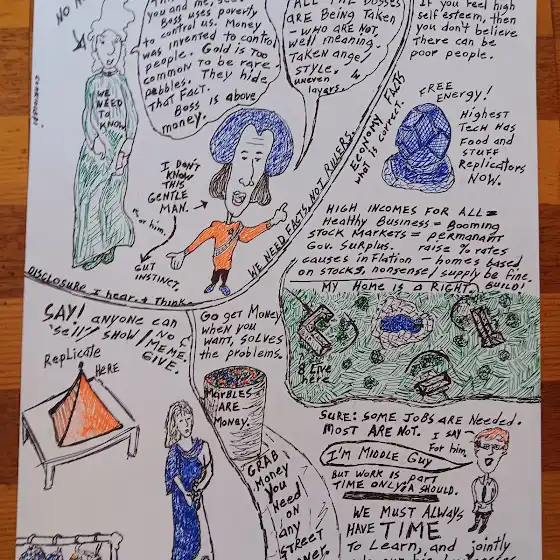 NO
you and me, se
Boss uses poverty
to control us. Money
was invented to control
people. Gold is too
common to be rare
pebbles. They hide
That Fact.
Boss is above
money.
WE
NEED
To
KNOW
ALL THE BOSSES
ARE Being Taken
- WHO ARE NOT
well meaning.
Taken angel
STYLE.
uneven
layers.
IF You Feel high
self esteem, then
you don't believe
There can be
poor people.
Economy FACTS
what is correct.
FREE
Energy!
Highest
Tech Has
Food and
STUFF
Replicators
NOW.
I DON'T
KNOW
THIS
GENTLE
MAN.
For him.
GUT
INSTINCT.
WE NEED FACTS NOT RULERS.
DISCLOSURE I hear + Think
HIGH INCOMES FOR ALL =
Healthy Business = Booming
STOCK MARKETS = permanant
Gov. Surplus. raise % rates
causes inflation - homes based
on stocks, nonsense/supply be fine.
BUILD!
MY Home is A RIGHT
8 Live
here
SAY! anyone can
"sell" show / MEME.
GIVE.
Replicate
HERE
Go get Money
when you
want, solves
the problems.
MARBLES
ARE
Money.
GRAB
Money
you
Need
on
any
STREET
SURE: SOME JOBS ARE Needed.
MOST ARE NOT. I SAY
For him.
I'M MIDDLE Guy
BUT WORK is part
TIME ONLY, & SHOULD.
WE MUST ALWAYS
HAVE TIME
To Learn, and jointly